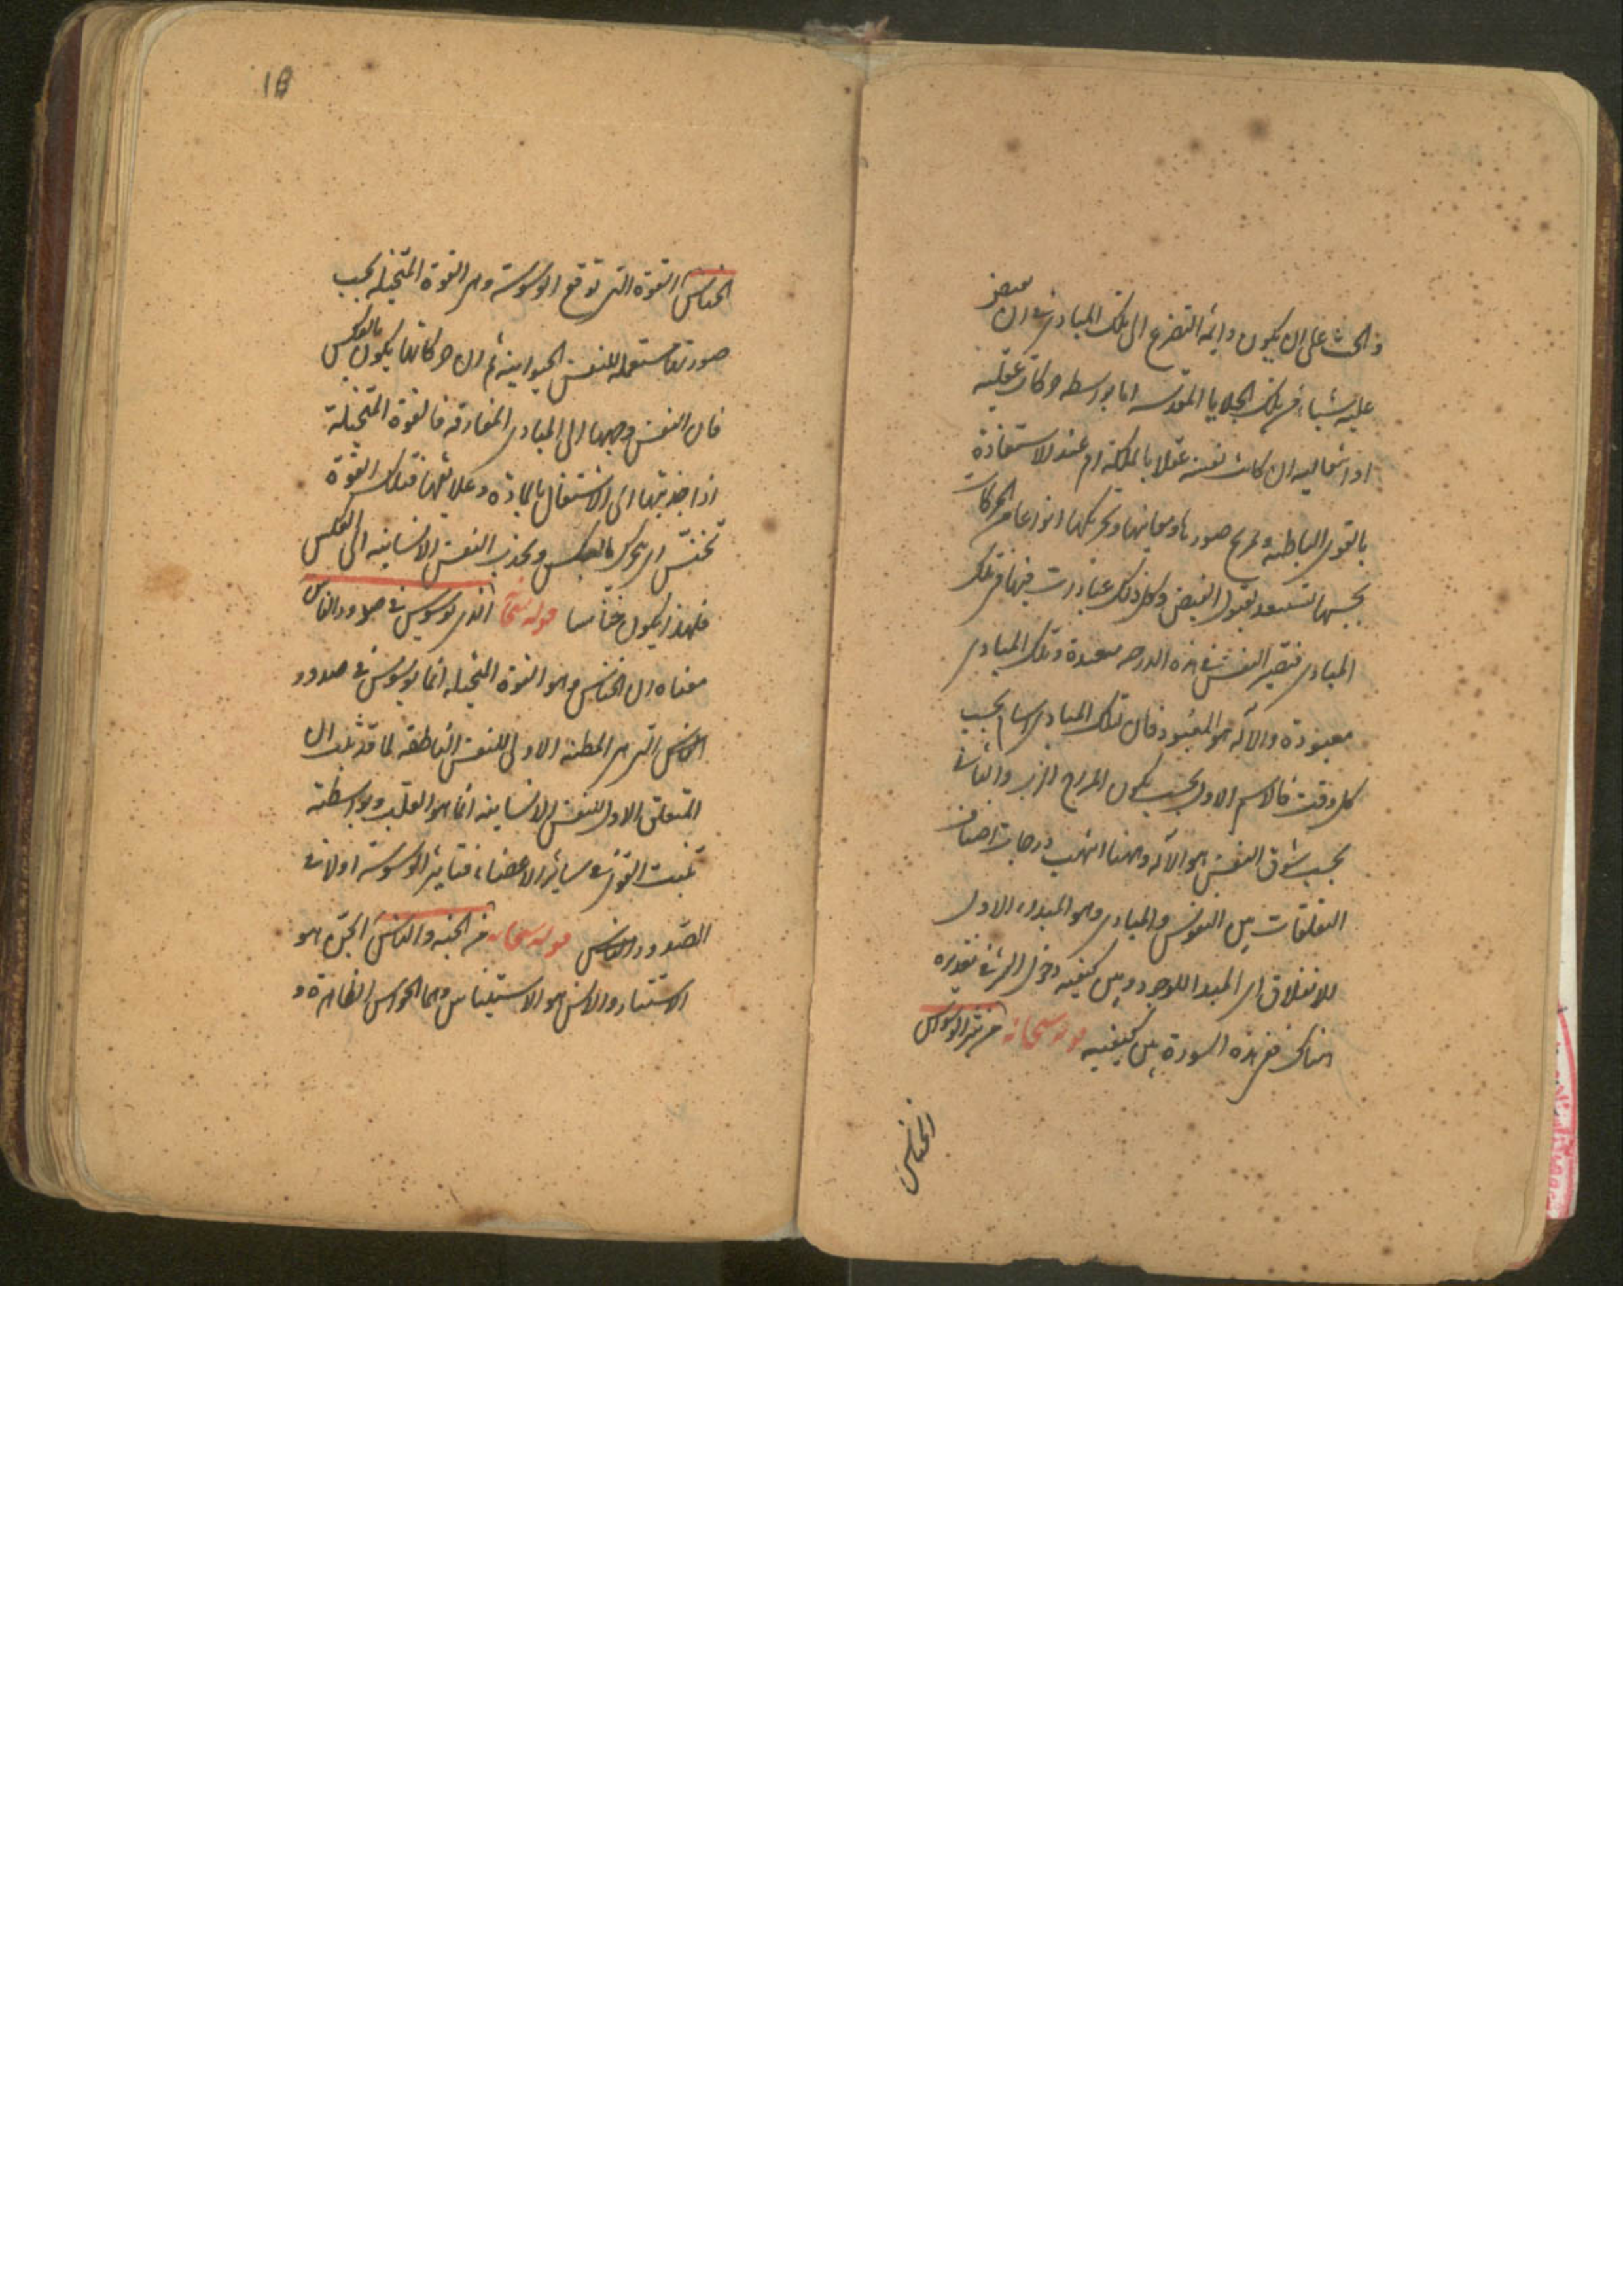 و الحث على ان يكون دايمة التضرع الى تلك المبادى فى ان يفيض
عليه شيئا من تلك الجلايا المقدسه اما بواسطه حركات عقليه
او انتقاليه ان كانت نفسه عقلا بالملكة ام عند الاستفادة
بالقوى الباطنه و مزج صورها ومعانيها وتحريكها انواعا من الحركات
بحسبها تستعد لقبول الفيض وكل ذلك عبادت منها فى تلك
المبادى فتصير النفس فى هذه الدرجه متعبدة وتلك المبادى
معبودة والآله هو المعبود فان تلك المبادى اسام بحسب
كل وقت فالاسم الاول بحسب تكون المزاج الرب والثانى
بحسب شوق النفس هو الآله وههنا انتهت درجات اصناف
التعلقات بين النفوس والمبادى وهو المبداء الاول
للانفلاق اى المبدا للوجود وبين كيفيه دخول الشر فى تقديره
هناك ففى هذه السورة بين كيفيه قوله سبحانه من شر الوسواس
الخناس
18
الخناس القوة التى توقع الوسوسة وهى القوة المتخيله بحسب
صورتها مستعمله للنفس الحيوانيه ثم ان حركاتها يكون بالعكس
فان النفس وجهها الى المبادى المفارقه فالقوة المتخيلة
اذا جذبتها الى الاشتغال بالمادة وعلايقها فتلك القوة
تخنس اى تتحرك بالعكس وتجذب النفس الانسانيه الى العكس
فلهذا يكون خناسا قوله سبحآ الذى يوسوس فى صدور الناس
معناه ان الخناس وهو القوة المتخيله انما يوسوس فى صدور
الناس التى هى المطيه الاولى للنفس الناطقه لما قد ثبت ان
المتعلق الاول للنفس الانسانيه انما هو القلب وبواسطته
تنبث القوى فى ساير الاعضاء فتاثير الوسوسة اولا فى
الصدور الناس قوله سبحانه من الجنه والناس الجن هو
الاستتار والانس هو الاستيناس وهما الحواس الظاهرة و